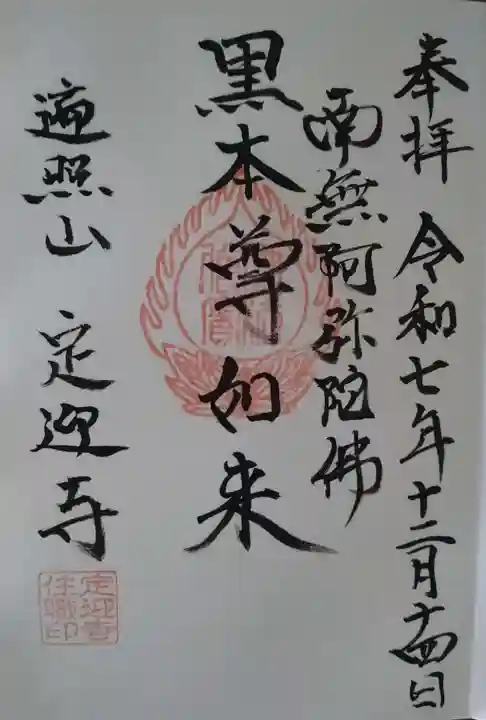 奉拝 令和七年十二月十四日
南無阿弥陀佛
黒本尊如来
遍照山 定迎寺
定迎寺住職印